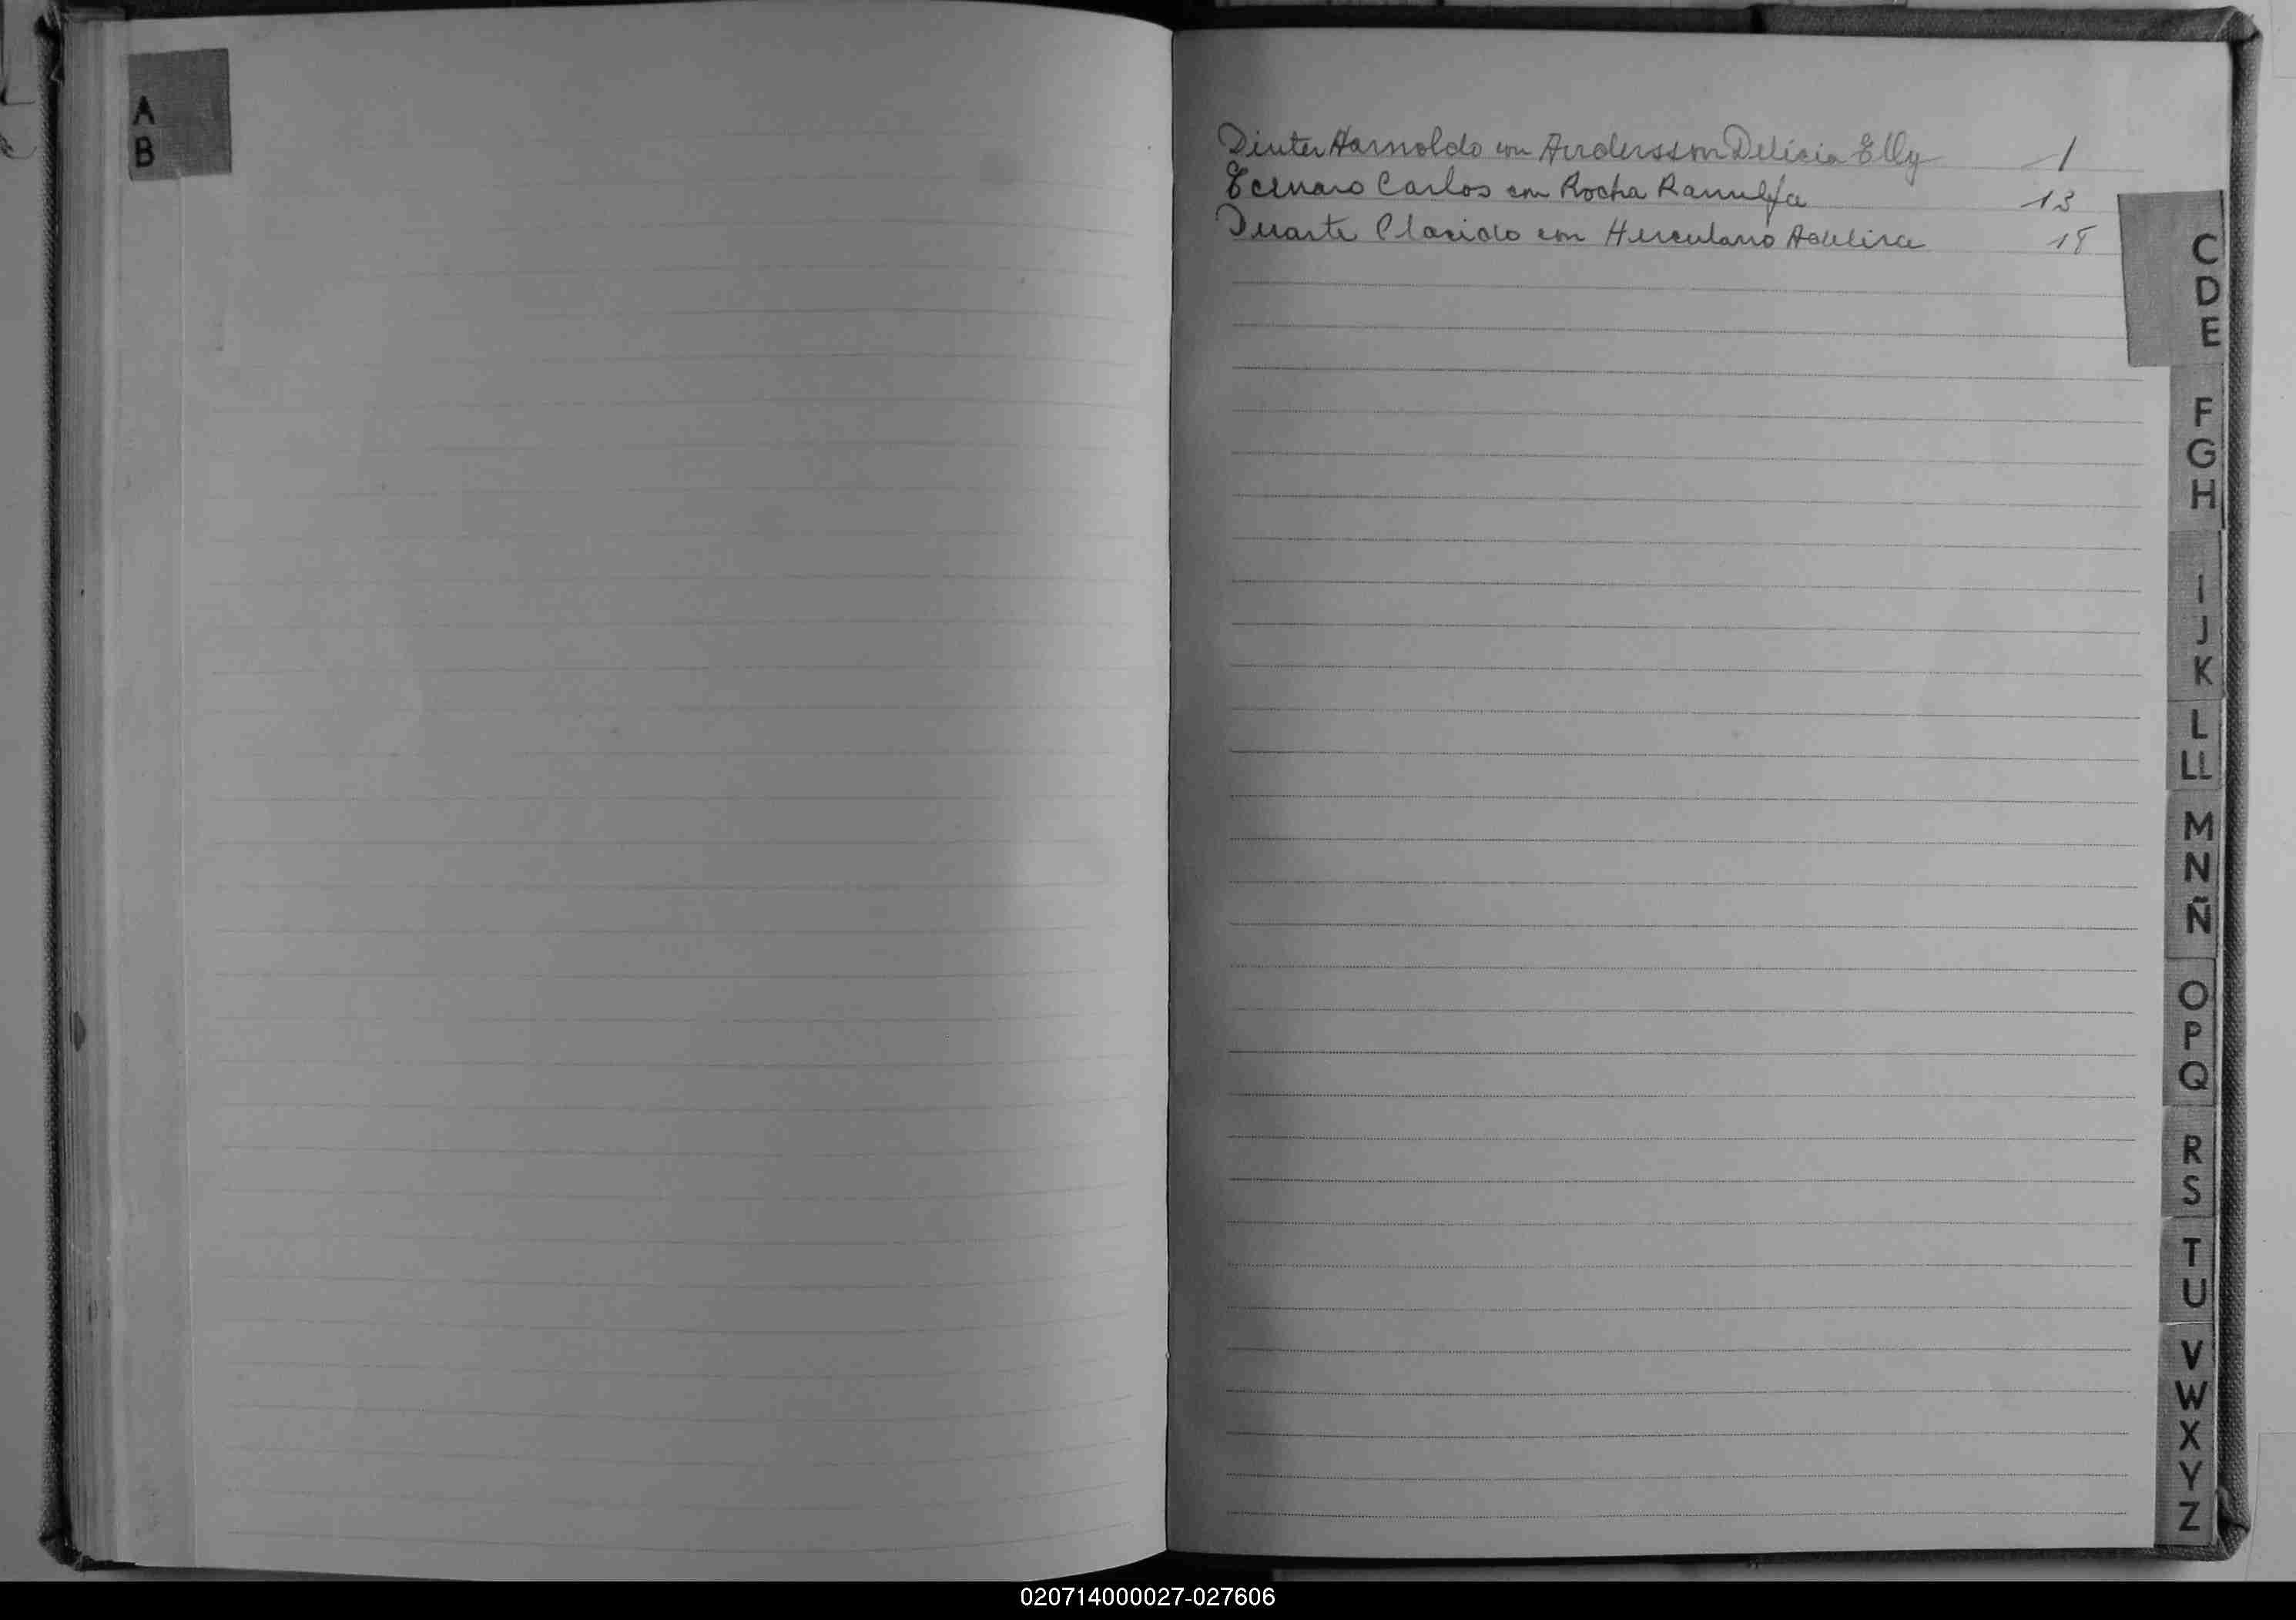 A
B
Dinter Harnoldo con Andersson Delicia Elly 1
Carlos con Rocha 13
Duarte Placido con Herculano 18
C
D
E
F
G
H
I
J
K
L
LL
M
N
Ñ
O
P
Q
R
S
T
U
V
W
X
Y
Z
020714000027-027606